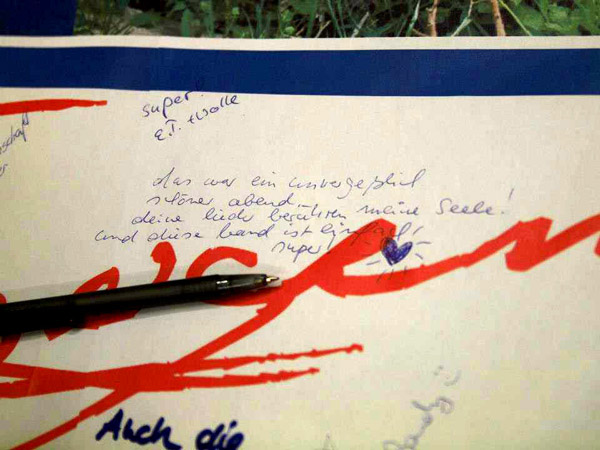 super.
E.T. + Wolle
das war ein unvergeßlich
schöner abend...
deine lieder berühren meine Seele!
und diese band ist einfach
super!
Auch die